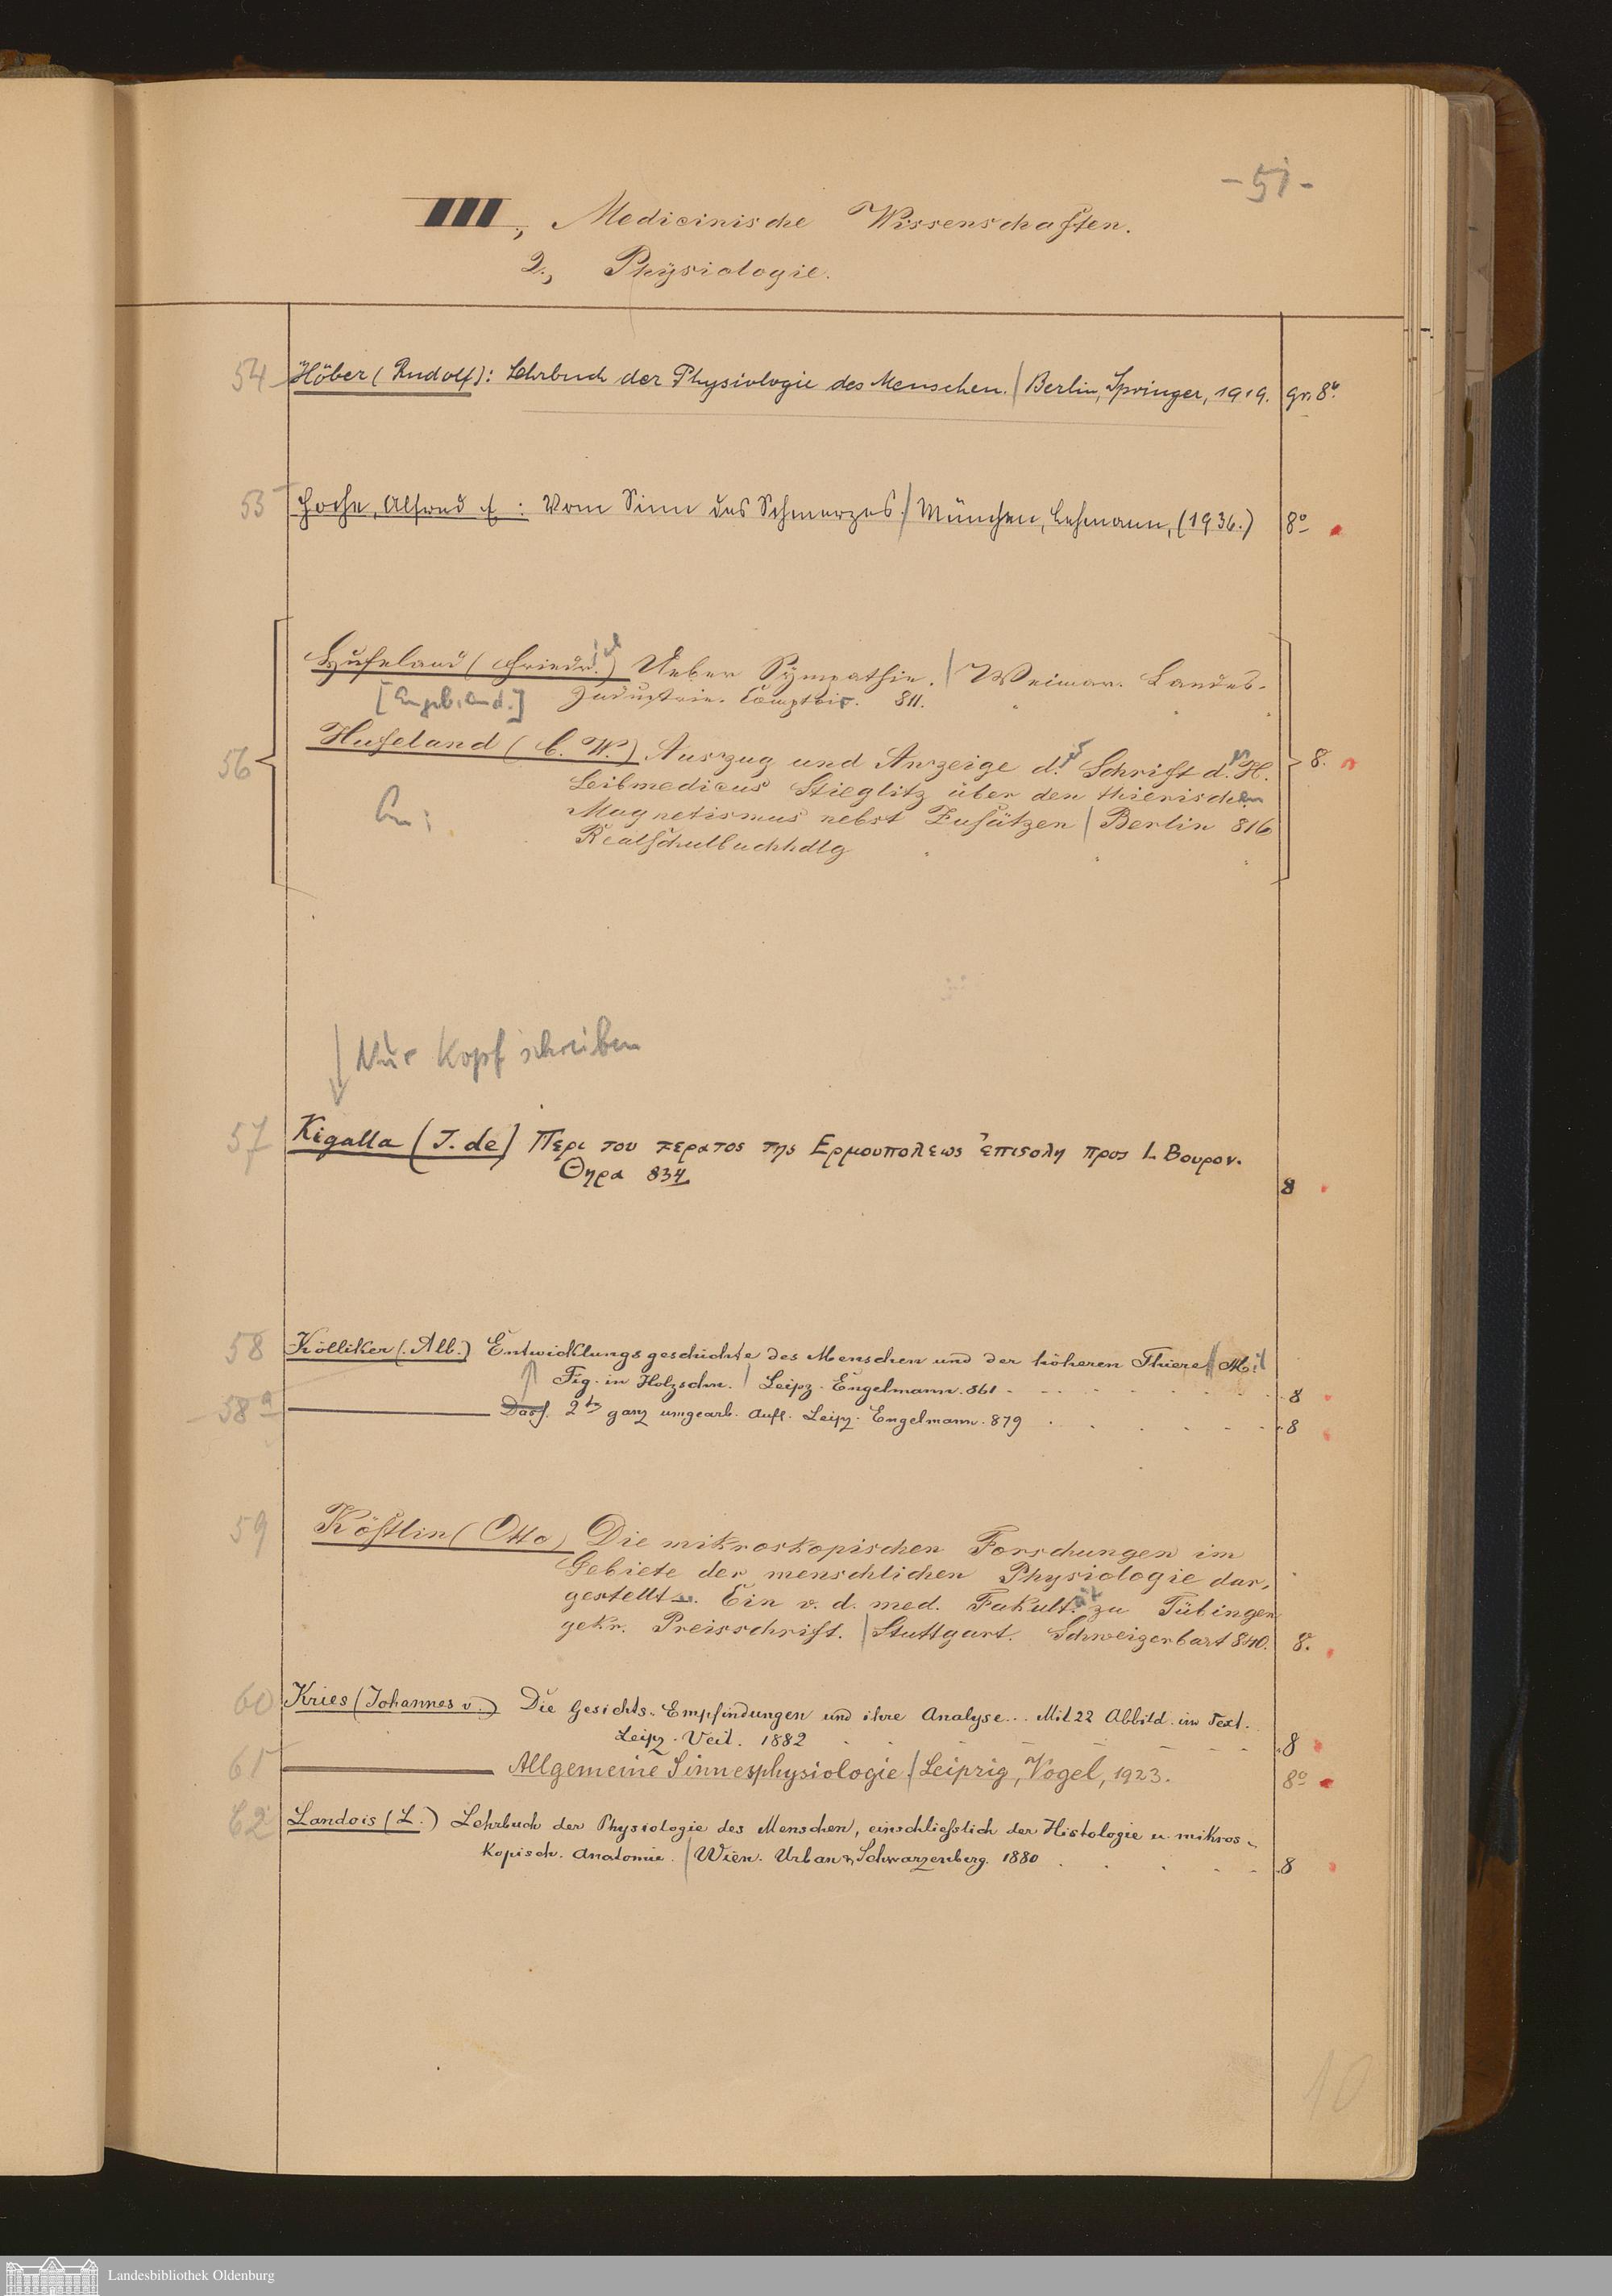 - 51 -
III, Medicinische Wissenschaften.
2., Physiologie.
54 Höber (Rudolf): Lehrbuch der Physiologie des Menschen. | Berlin, Springer, 1919. gr. 8°.
55 Hoche, Alfred E.: Vom Sinn des Schmerzes. | München, Lehmann, (1936.) 8°
Hufeland (Friedr.) Ueber Sympathie. | Weimar. Landes-
[Angeb. and.] Industrie. Comptoir. 811.
56 Hufeland (C. W.) Auszug und Anzeige d. Schrift d. H. 8.
Leibmedicus Stieglitz über den thierischen
An: Magnetismus nebst Zusätzen | Berlin 816
Realschulbuchhdlg
Nur Kopf schreiben
57 Kigalla (J. de) Περι του τερατος της Ερμουπολεως ἐπιςολη προς L Βουρον.
Θηρα 834 8
58 Kölliker (Alb.) Entwicklungsgeschichte des Menschen und der höheren Thiere | Mit
Fig. in Holzschn. | Leipz. Engelmann. 861 8
58a Dass. 2te ganz umgearb. Aufl. Leipz. Engelmann. 879 8
59 Köstlin (Otto) Die mikroskopischen Forschungen im
Gebiete der menschlichen Physiologie dar-
gestellt. Ein v. d. med. Fakult. zu Tübingen
gekr. Preisschrift. | Stuttgart. Schweizerbart 840. 8.
60 Kries (Johannes v.) Die Gesichts-Empfindungen und ihre Analyse... Mit 22 Abbild. im Text.
Leipz. Veit. 1882 8
61 Allgemeine Sinnesphysiologie. | Leipzig, Vogel, 1923. 8°
62 Landois (L.) Lehrbuch der Physiologie des Menschen, einschliesslich der Histologie u. mikros-
kopisch. Anatomie. | Wien. Urban & Schwarzenberg. 1880 8
10
Landesbibliothek Oldenburg